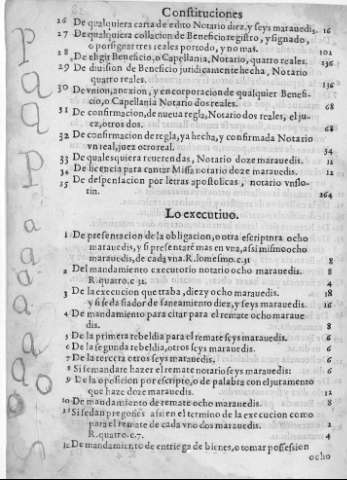 Constituciones
26 De qualquiera carta de edito Notario diez, y seys marauedis. 16
27 De qualquiera collacion de Beneficio registro, y signado,
o por signar tres reales por todo, y no mas. 102
28 De eligir Beneficio, o Capellania, Notario, quatro reales. 136
29 De diuision de Beneficio juridicamente hecha, Notario
quatro reales. 136
30 De vnion, anexion, y encorporacion de qualquier Benefi-
cio, o Capellania Notario dos reales. 68
31 De confirmacion, de nueua regla, Notario dos reales, el ju-
ez, otros dos. 68
32 De confirmacion de regla, ya hecha, y confirmada Notario
vn real, juez otro real. 34
33 De qualesquiera reuerendas, Notario doze marauedis. 12
34 De licencia para cantar Missa notario doze marauedis. 12
35 De despensacion por letras apostolicas, notario vn flo-
rin. 264
Lo executiuo.
1 De presentacion de la obligacion, o otra escriptura ocho
marauedis, y si presentaré mas en vez, assi mismo ocho
marauedis, de cada vna. R. lo mesmo. c. 31 8
2 Del mandamiento executorio notario ocho marauedis. 8
R. quatro. c. 32. 4
3 De la execucion que traba, diez y ocho marauedis. 18
y si se da fiador de saneamiento diez, y seys marauedis. 16
4 De mandamiento para citar para el remate ocho maraue
dis. 8
5 De la primera rebeldia para el remate seys marauedis. 6
6 De la segunda rebeldia, otros seys marauedis. 6
7 De la tercera otros seys marauedis. 6
8 Si se mandare hazer el remate notario seys marauedis: 6
9 De la oposicion por escripto, o de palabra con el juramento
que haze doze marauedis. 12
10 De mandamiento de remate ocho marauedis. 8
11 Si se dan pregones assi en el termino de la execucion como
para el remate de cada vno dos marauedis. 2
R. quatro. c. 7. 4
12 De mandamiento de entriega de bienes, o tomar possession
ocho